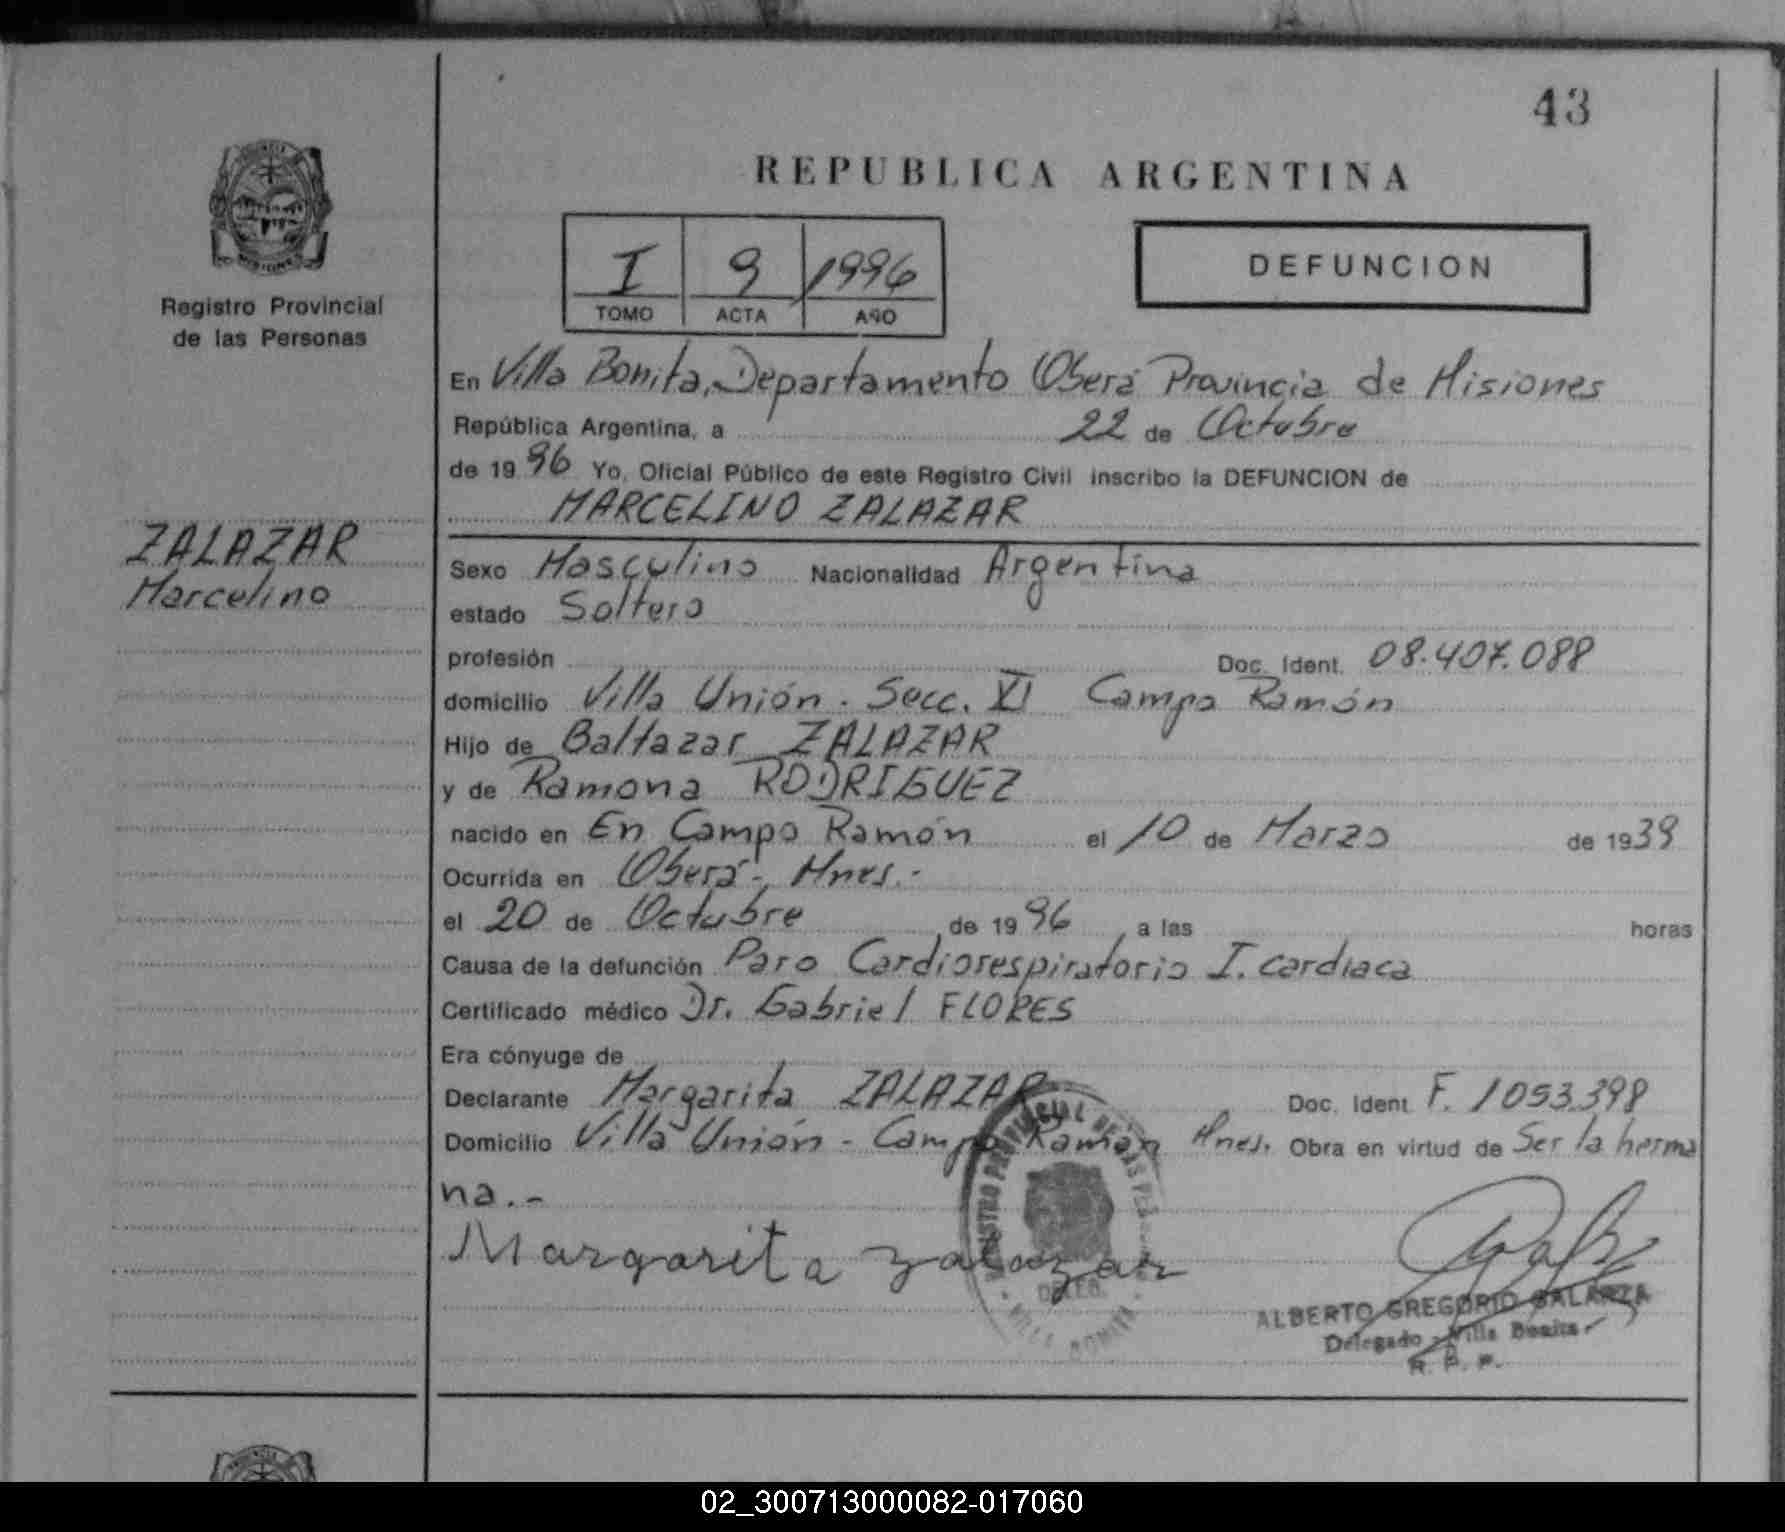 43
REPUBLICA ARGENTINA
Registro Provincial
de las Personas
I 9 1996
TOMO ACTA AÑO
DEFUNCION
En Villa Bonita, Departamento Oberá Provincia de Misiones
República Argentina, a 22 de Octubre
de 1996 Yo, Oficial Público de este Registro Civil inscribo la DEFUNCION de
MARCELINO ZALAZAR
ZALAZAR
Marcelino
Sexo Masculino Nacionalidad Argentina
estado Soltero
profesión Doc. Ident. 08.407.088
domicilio Villa Unión - Secc. XI Campo Ramón
Hijo de Baltazar ZALAZAR
y de Ramona RODRIGUEZ
nacido en En Campo Ramón el 10 de Marzo de 1939
Ocurrida en Oberá-, Mnes.-
el 20 de Octubre de 1996, a las horas
Causa de la defunción Paro Cardiorespiratorio I. cardiaca
Certificado médico Dr. Gabriel FLORES
Era cónyuge de
Declarante Margarita ZALAZAR Doc. Ident F. 1053.398
Domicilio Villa Unión - Campo Ramón Mnes. Obra en virtud de Ser la herma
na.-
Margarita zalazar
REGISTRO PROVINCIAL DE LAS
DELEG.
VILLA BONITA
ALBERTO GREGORIO GALARZA
Delegado - Villa Bonita
R. P. P.
02_300713000082-017060